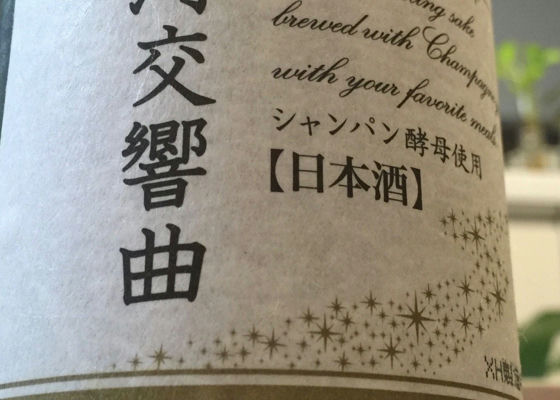 河交響曲
sake
brewed with Champagne
with your favorite meals
シャンパン酵母使用
【日本酒】